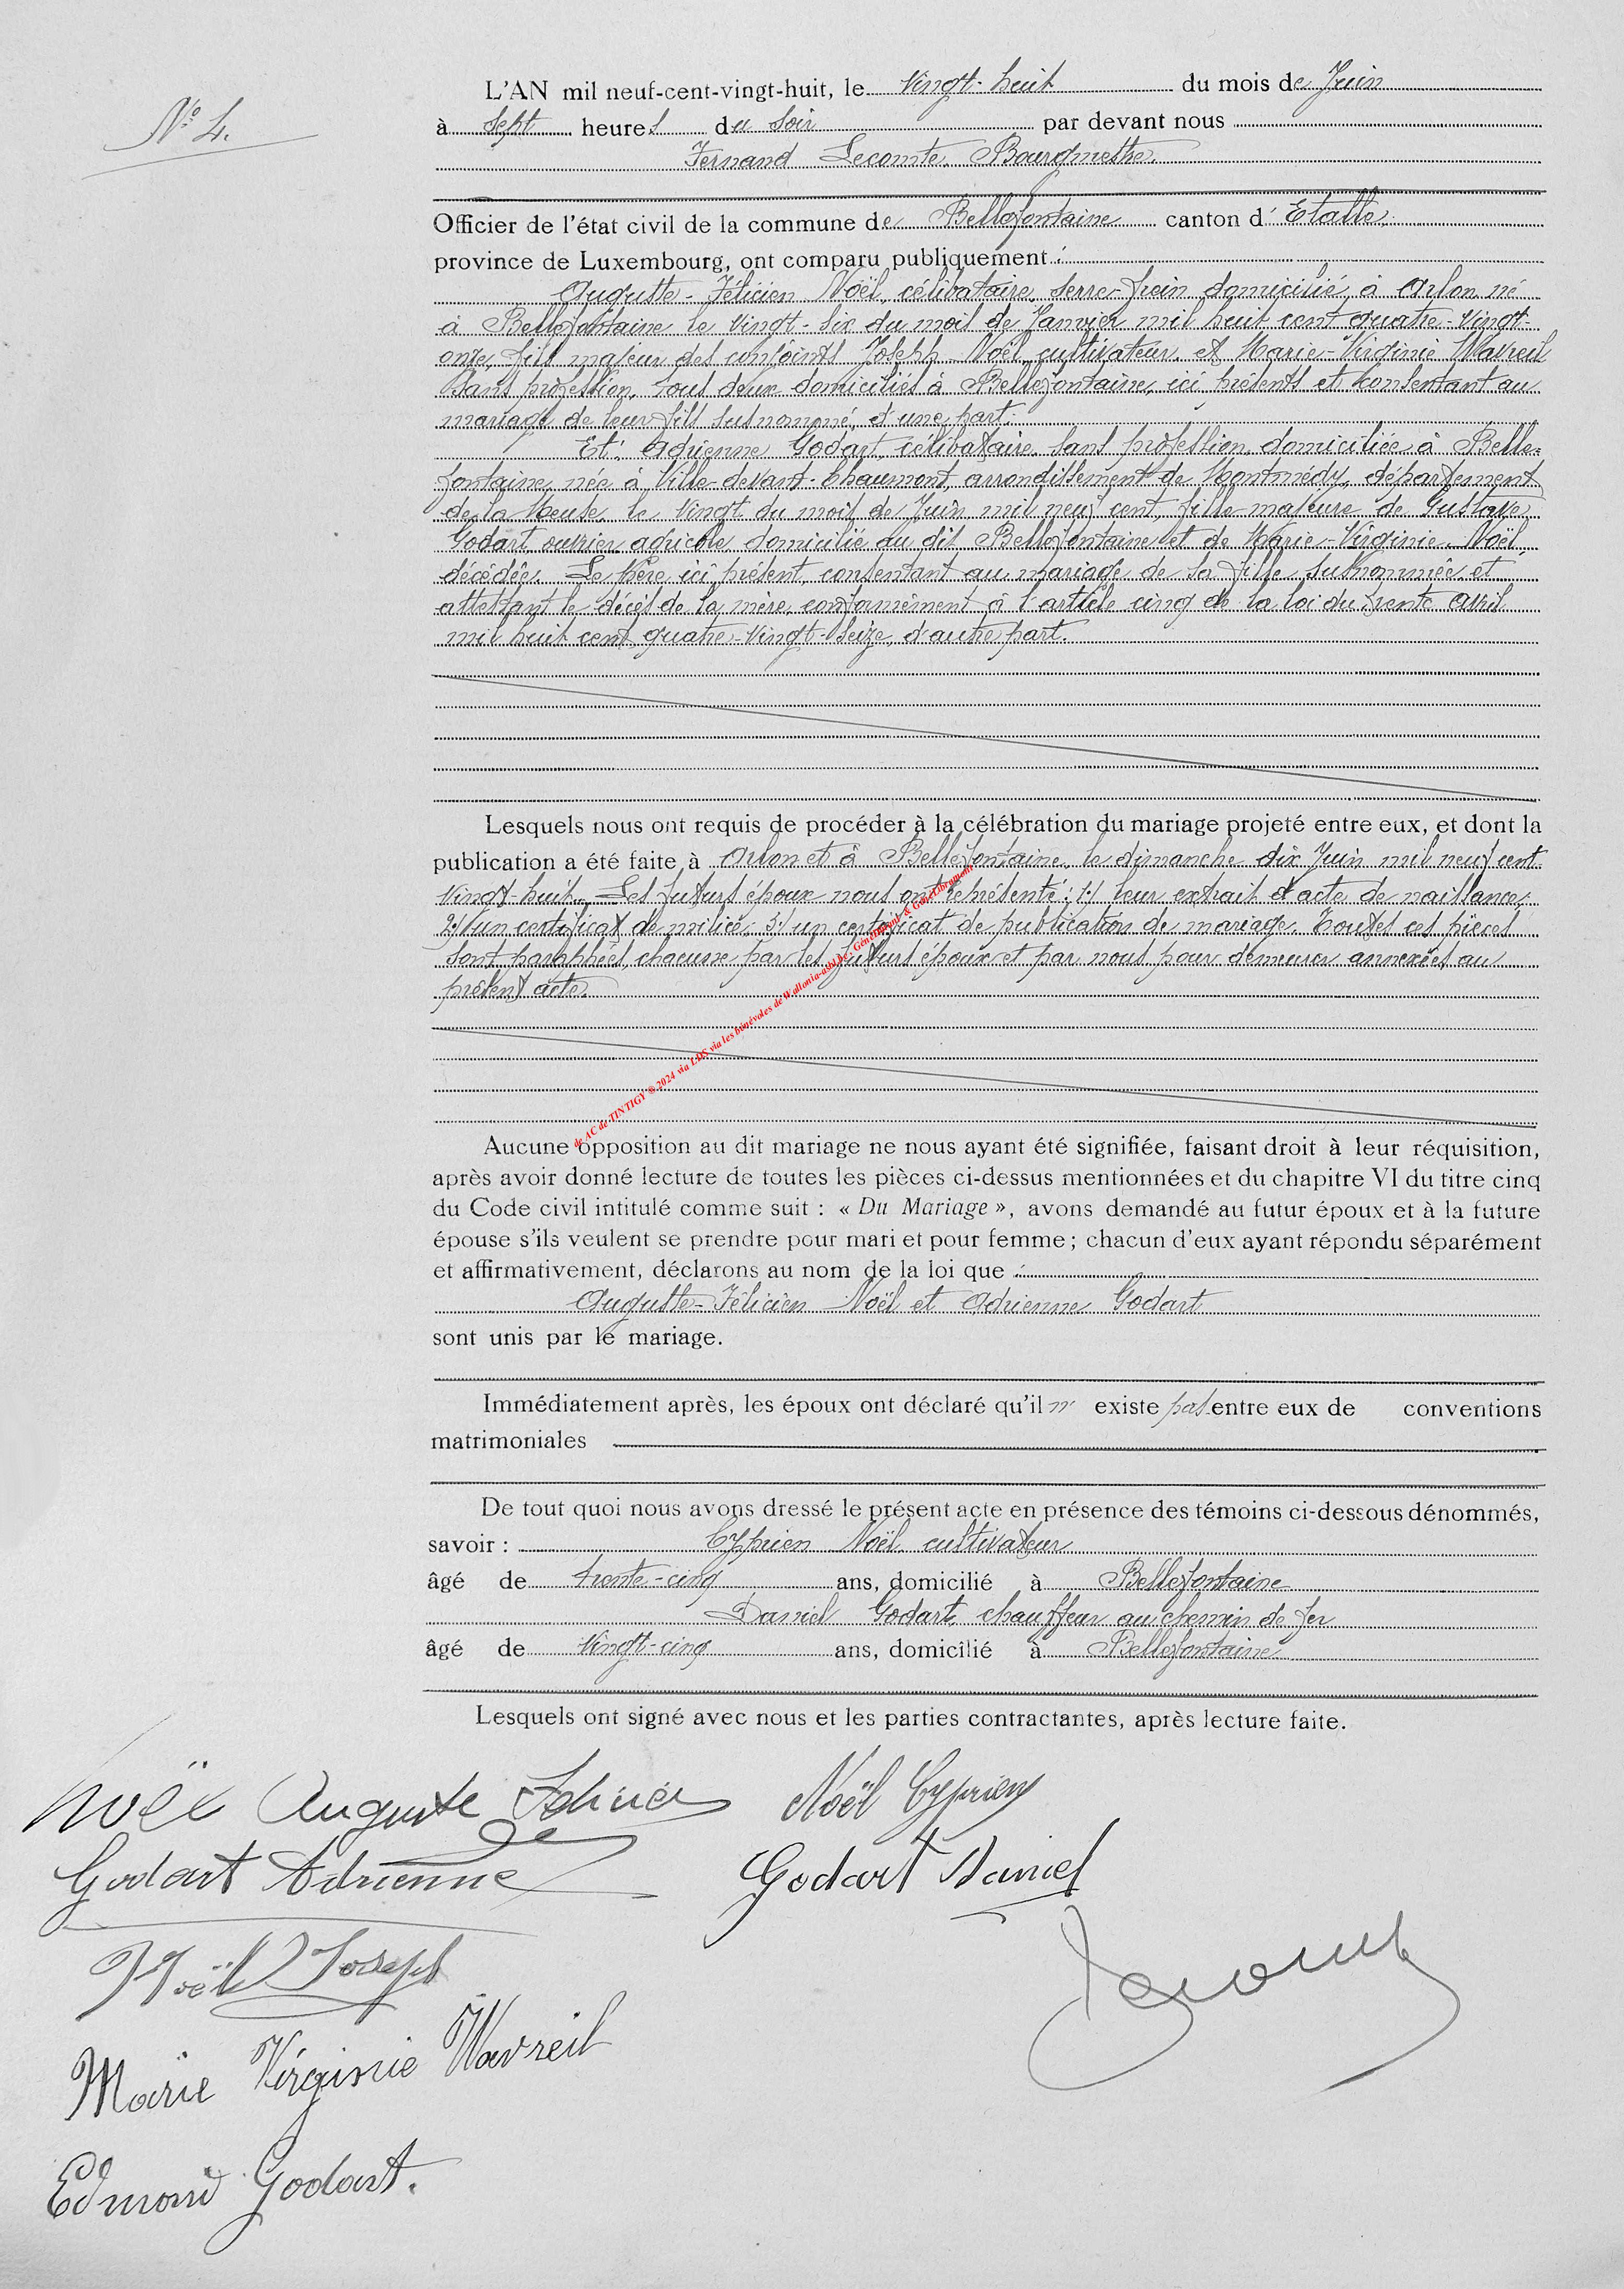 N° 4.
L'AN mil neuf-cent-vingt-huit, le vingt-huit du mois de Juin
à sept heures du soir par devant nous
Fernand Lecomte, Bourgmestre,
Officier de l'état civil de la commune de Bellefontaine canton d' Etalle,
province de Luxembourg, ont comparu publiquement :
Auguste-Félicien Noël, célibataire, serre-frein domicilié à Arlon, né
à Bellefontaine le vingt-six du mois de Janvier mil huit cent quatre-vingt-
onze, fils majeur des conjoints Joseph Noël, cultivateur, et Marie-Virginie Wavreil
sans profession, tous deux domiciliés à Bellefontaine, ici présents et consentant au
mariage de leur fils susnommé, d'une part.
Et: Adrienne Godart, célibataire, sans profession, domiciliée à Belle-
fontaine, née à Ville-devant-Chaumont, arrondissement de Montmédy, département
de la Meuse, le vingt du mois de Juin mil neuf cent, fille majeure de Gustave
Godart ouvrier agricole domicilié au dit Bellefontaine et de Marie-Virginie Noël,
décédée. Le Père ici présent, consentant au mariage de sa fille susnommée et
attestant le décès de la mère, conformément à l'article cinq de la loi du trente Avril
mil huit cent quatre-vingt-seize, d'autre part.
Lesquels nous ont requis de procéder à la célébration du mariage projeté entre eux, et dont la
publication a été faite à Arlon et à Bellefontaine, le dimanche dix Juin mil neuf cent
vingt-huit. Les futurs époux nous ont représenté: 1:/ leur extrait d'acte de naissance;
2:/ un certificat de milice; 3:/ un certificat de publication de mariage. Toutes ces pièces
sont paraphées, chacune par les futurs époux et par nous pour demeurer annexées au
présent acte.
de AC de TINTIGY ® 2024 via LDS via les bénévoles de Wallonia-asbl.be - Généamont & Gené-Libramont
Aucune opposition au dit mariage ne nous ayant été signifiée, faisant droit à leur réquisition,
après avoir donné lecture de toutes les pièces ci-dessus mentionnées et du chapitre VI du titre cinq
du Code civil intitulé comme suit : « Du Mariage », avons demandé au futur époux et à la future
épouse s'ils veulent se prendre pour mari et pour femme ; chacun d'eux ayant répondu séparément
et affirmativement, déclarons au nom de la loi que :
Auguste-Félicien Noël et Adrienne Godart
sont unis par le mariage.
Immédiatement après, les époux ont déclaré qu'il n' existe pas entre eux de conventions
matrimoniales
De tout quoi nous avons dressé le présent acte en présence des témoins ci-dessous dénommés,
savoir : Cyprien Noël, cultivateur
âgé de trente-cinq ans, domicilié à Bellefontaine
Daniel Godart, chauffeur au chemin de fer
âgé de vingt-cinq ans, domicilié à Bellefontaine
Lesquels ont signé avec nous et les parties contractantes, après lecture faite.
Noël Auguste Félicien Noël Cyprien
Godart Adrienne Godart Daniel
Noël Joseph Lecomte
Marie Virginie Wavreil
Edmond Godart.